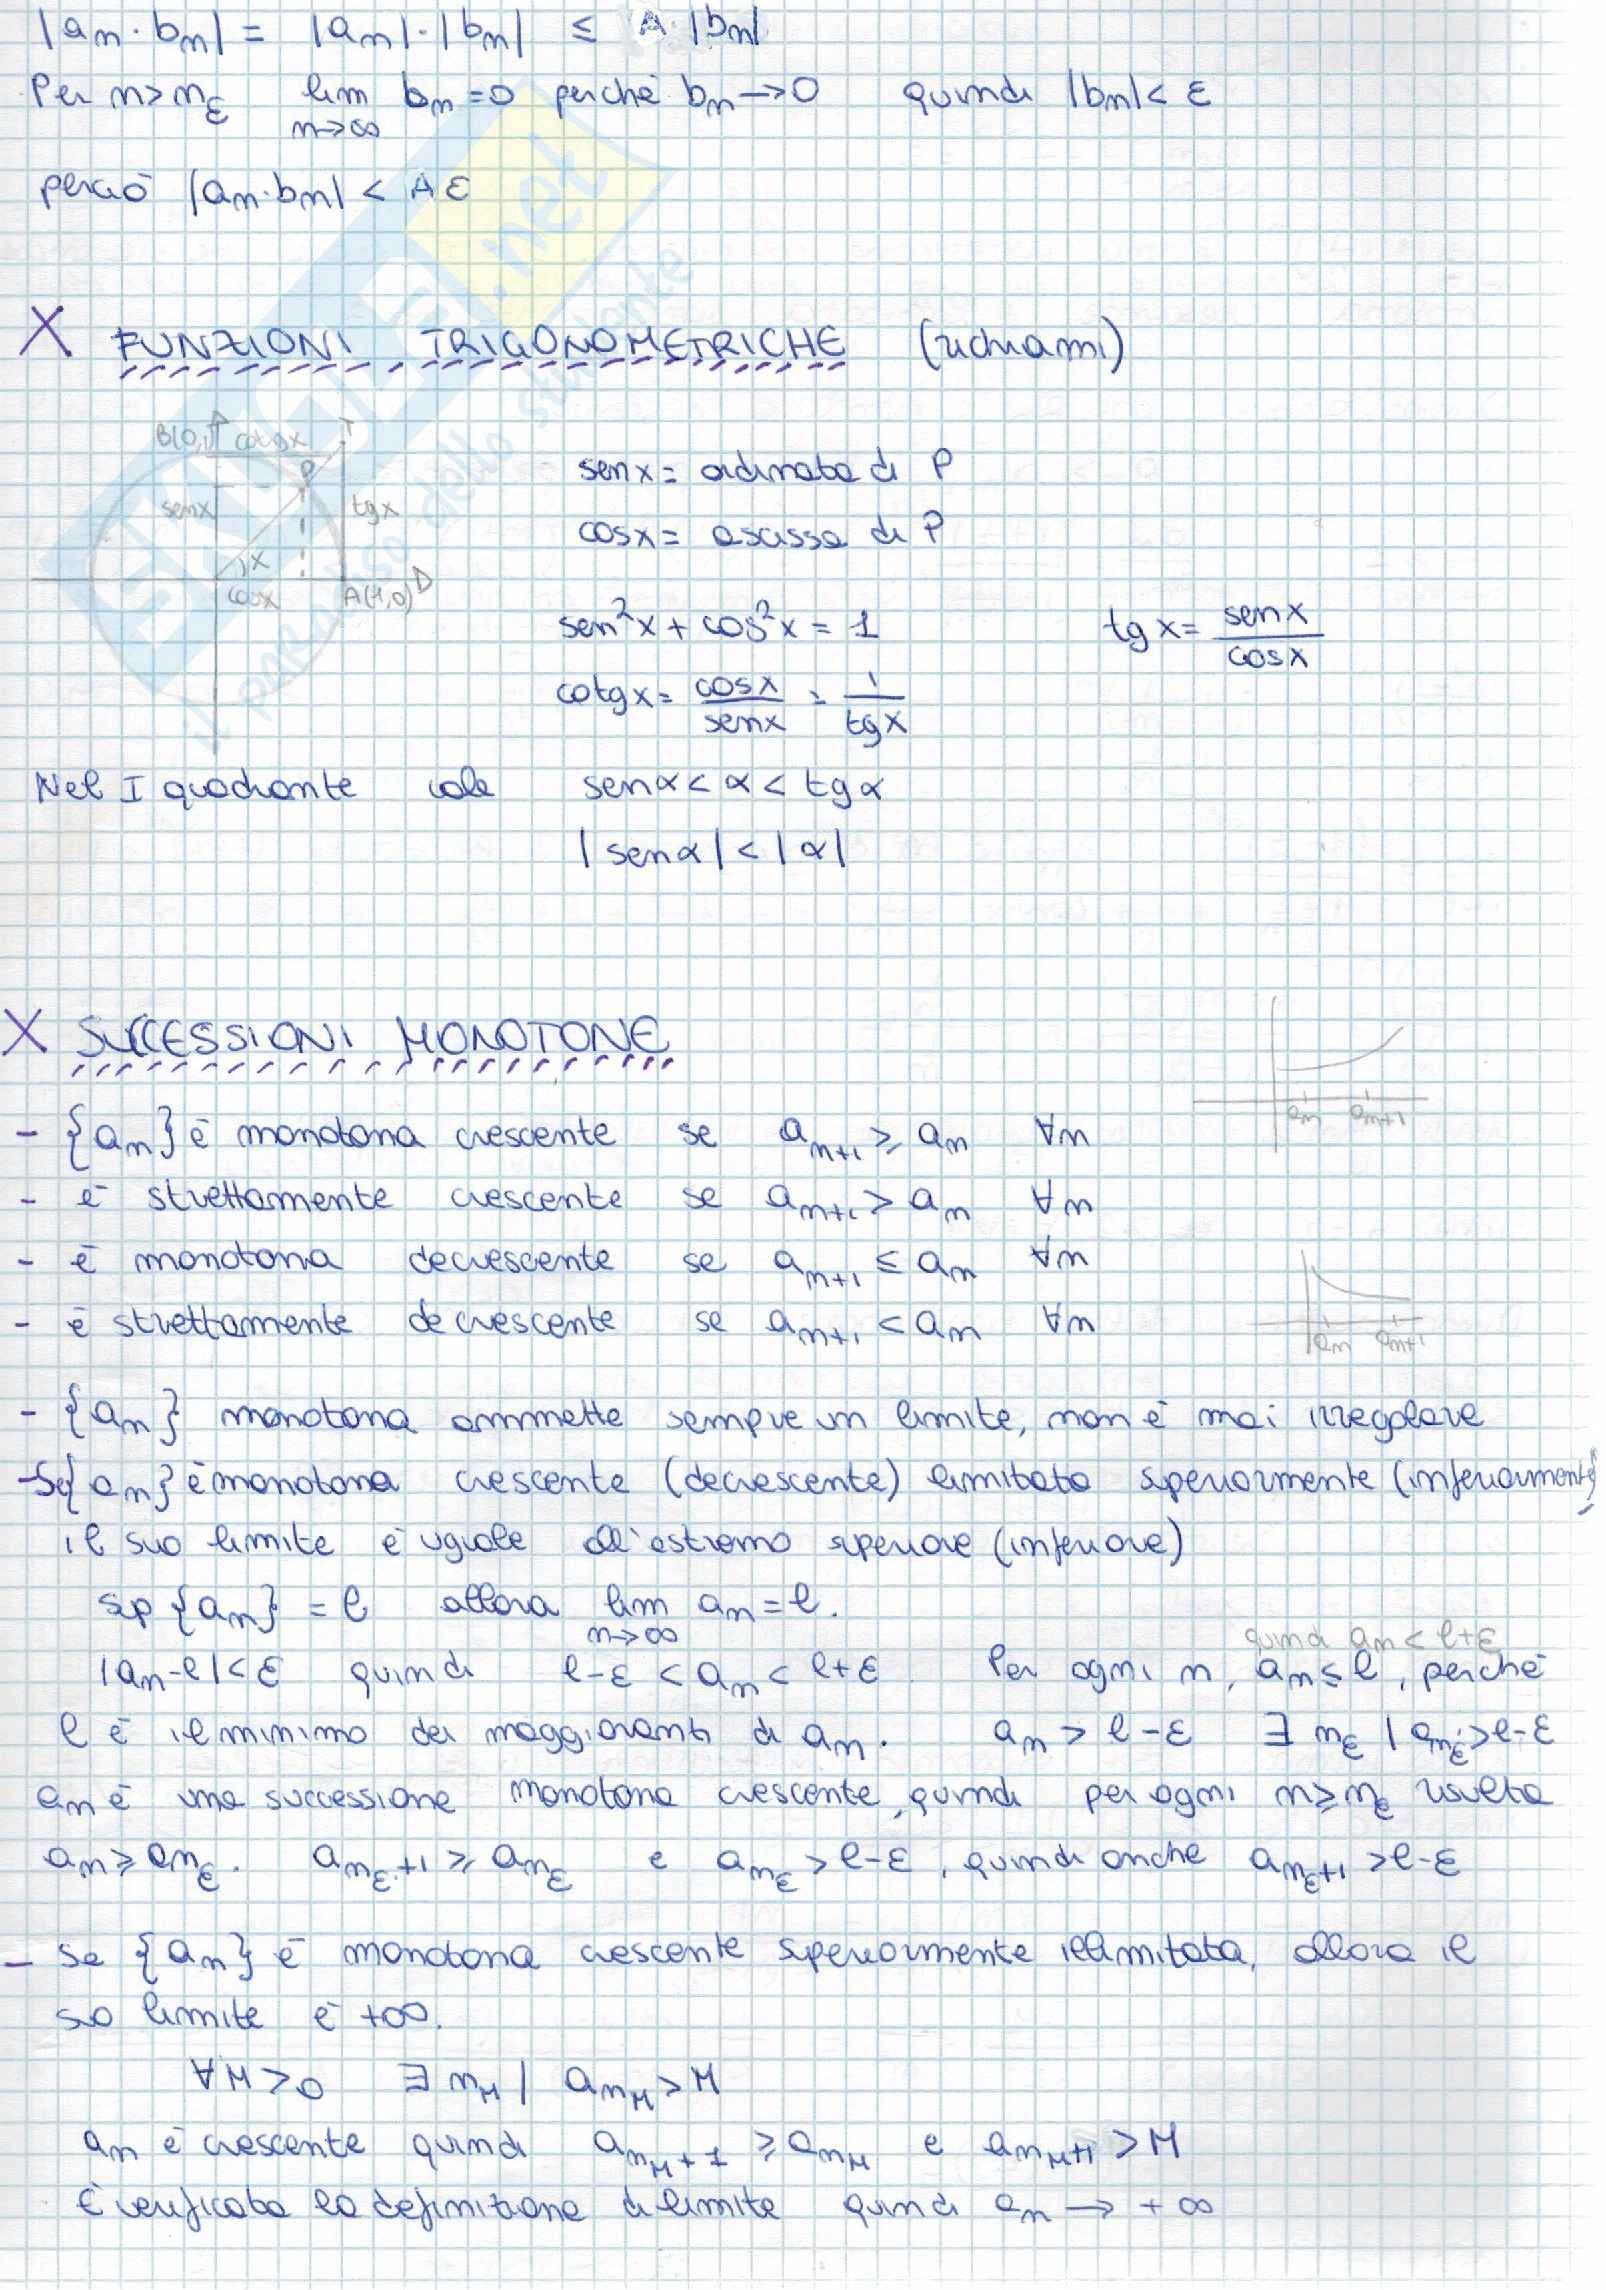 |an · bn| = |an| · |bn| ≤ A · |bn|
Per n > nε lim n→∞ bn = 0 perché bn → 0 quindi |bn| < ε
perciò |an · bn| < A ε
X FUNZIONI TRIGONOMETRICHE (richiami)
B(0,1) cotgx T
P
senx tgx
x
cosx A(1,0)
senx = ordinata di P
cosx = ascissa di P
sen²x + cos²x = 1 tgx = senx/cosx
cotgx = cosx/senx = 1/tgx
Nel I quadrante vale senα < α < tgα
|senα| < |α|
X SUCCESSIONI MONOTONE
an an+1
- {an} è monotona crescente se an+1 ≥ an ∀n
- è strettamente crescente se an+1 > an ∀n
- è monotona decrescente se an+1 ≤ an ∀n
- è strettamente decrescente se an+1 < an ∀n
an an+1
- {an} monotona ammette sempre un limite, non è mai irregolare
- Se {an} è monotona crescente (decrescente) limitata superiormente (inferiormente)
il suo limite è uguale all'estremo superiore (inferiore)
sup {an} = l allora lim n→∞ an = l.
quindi an < l+ε
|an-l| < ε quindi l-ε < an < l+ε Per ogni n, an ≤ l, perché
l è il minimo dei maggioranti di an. an > l-ε ∃ nε | anε > l-ε
an è una successione monotona crescente, quindi per ogni n ≥ nε risulta
an ≥ anε. anε+1 ≥ anε e anε > l-ε, quindi anche anε+1 > l-ε
- Se {an} è monotona crescente superiormente illimitata, allora il
suo limite è +∞.
∀M > 0 ∃ nM | anM > M
an è crescente quindi anM+1 ≥ anM e anM+1 > M
È verificata la definizione di limite quindi an → +∞
SKUOLA.net
il paradiso dello studente